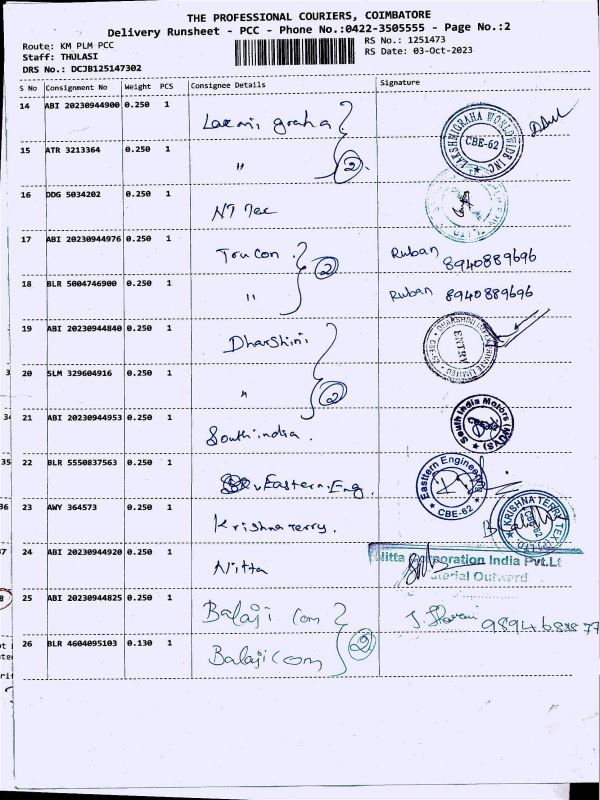 THE PROFESSIONAL COURIERS, COIMBATORE
Delivery Runsheet - PCC - Phone No.:0422-3505555 - Page No.:2
Route: KM PLM PCC
RS No.: 1251473
Staff: THULASI
RS Date: 03-Oct-2023
DRS No.: DCJB125147302
S No Consignment No Weight PCS Consignee Details Signature
14 ABI 20230944900 0.250 1 Laxmi graha
LAKSHMIGRAHA WORLDWIDE INC CBE-62
15 ATR 3213364 0.250 1 " 2
16 DDG 5034202 0.250 1 NT Tec
17 ABI 20230944976 0.250 1 Trucon 2 Ruban 8940889696
18 BLR 5004746900 0.250 1 " Ruban 8940889696
19 ABI 20230944840 0.250 1 Dharshini
ENTRY
20 SLM 329604916 0.250 1 " 2
21 ABI 20230944953 0.250 1 South india.
South India Motors
22 BLR 5550837563 0.250 1 Eastern. Eng.
Easttern Engineering CBE-62
23 AWY 364573 0.250 1 Krishna Terry.
KRISHNA TERRY TEX CBE-62
24 ABI 20230944920 0.250 1 Nitta
Nitta Corporation India Pvt.Lt
Material Outward
25 ABI 20230944825 0.250 1 Balaji Com
26 BLR 4604095103 0.130 1 Balaji com 2